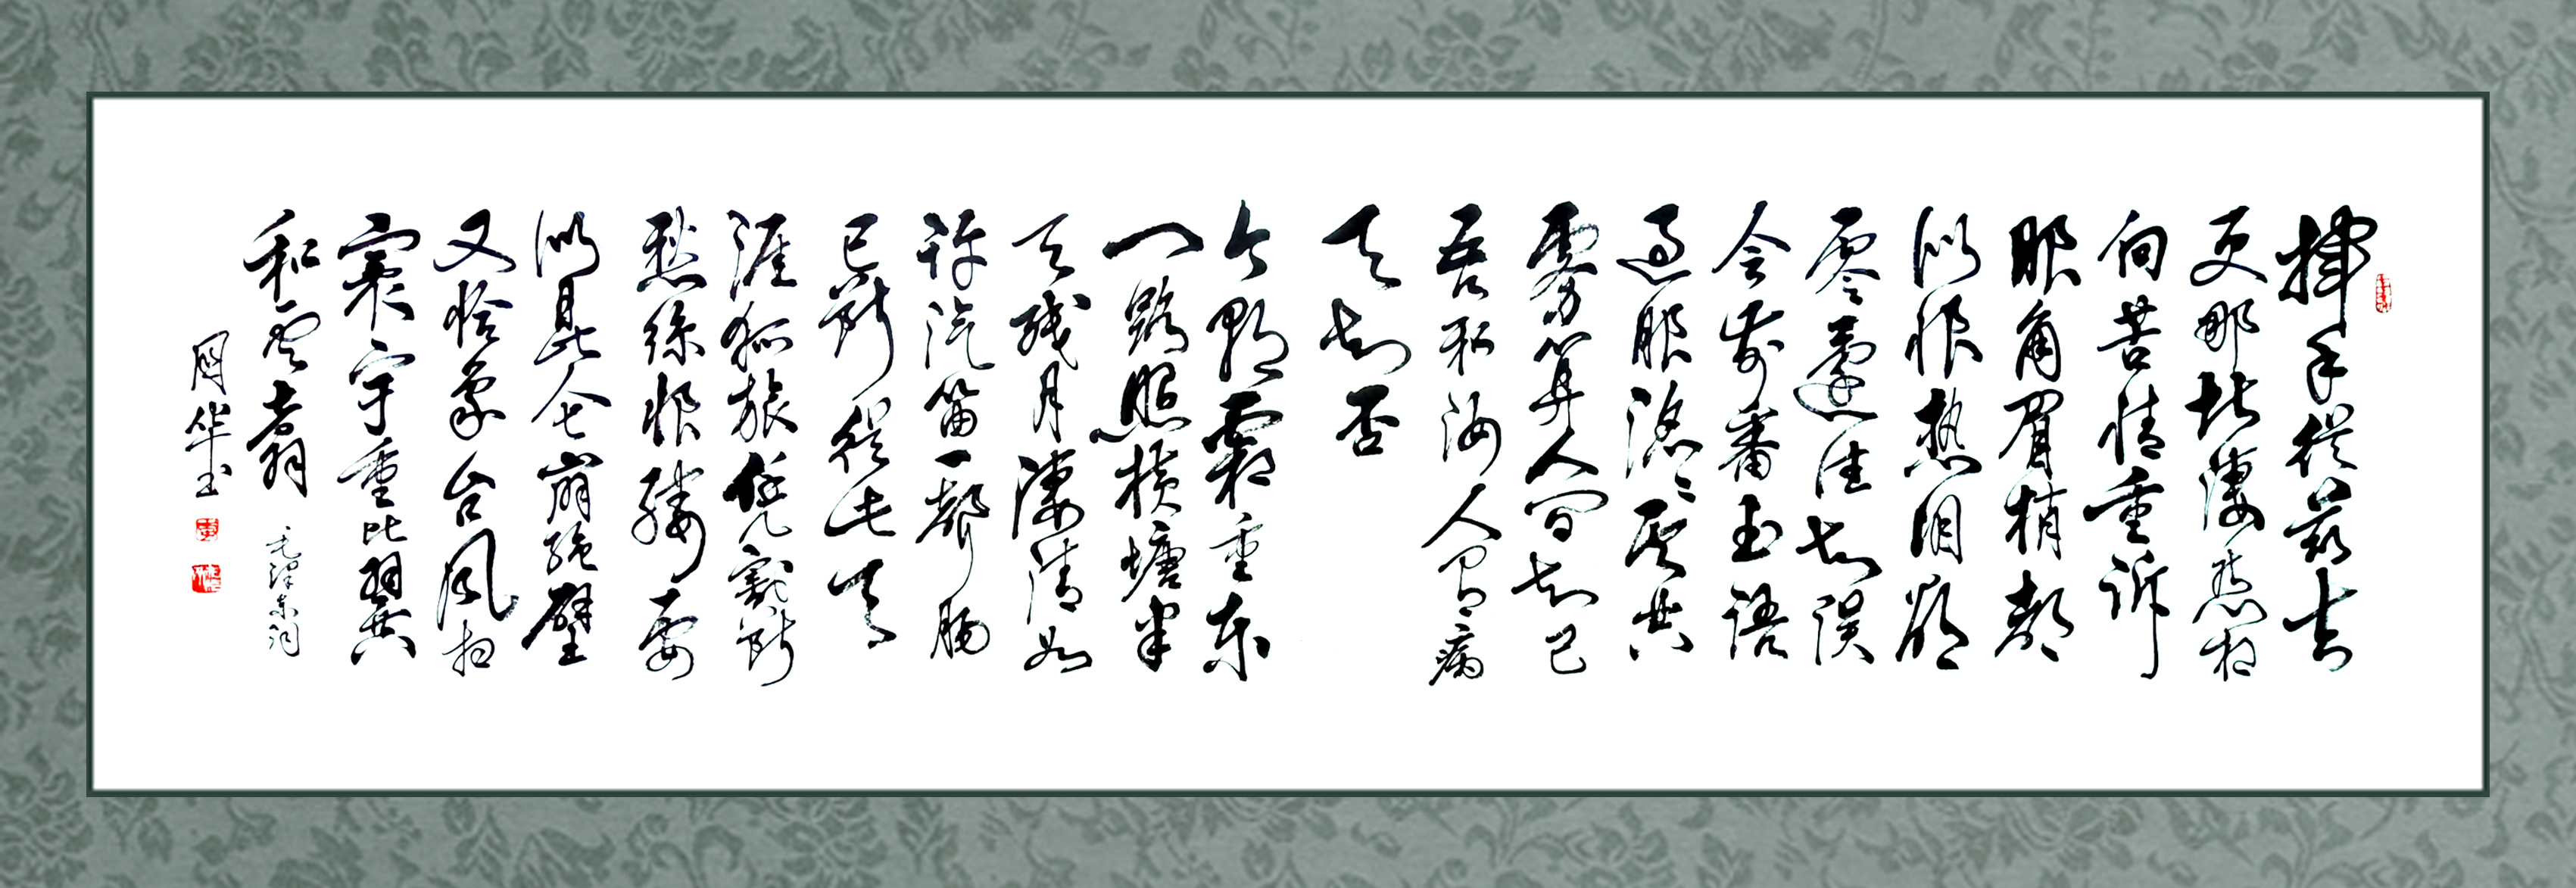 揮手從兹去
更那堪凄然相
向苦情重訴
眼角眉梢都
似恨热泪欲
零還住知误
会前番书语
過眼滔滔云共
雾算人间知己
吾和汝人有病
天知否
今朝霜重东
门路照横塘半
天残月凄清如
许汽笛一声肠
已断從此天
涯孤旅凭割断
愁絲恨縷要
似昆仑崩绝壁
又恰象台风扫
寰宇重比翼
和云翥 毛泽东词
周华玉